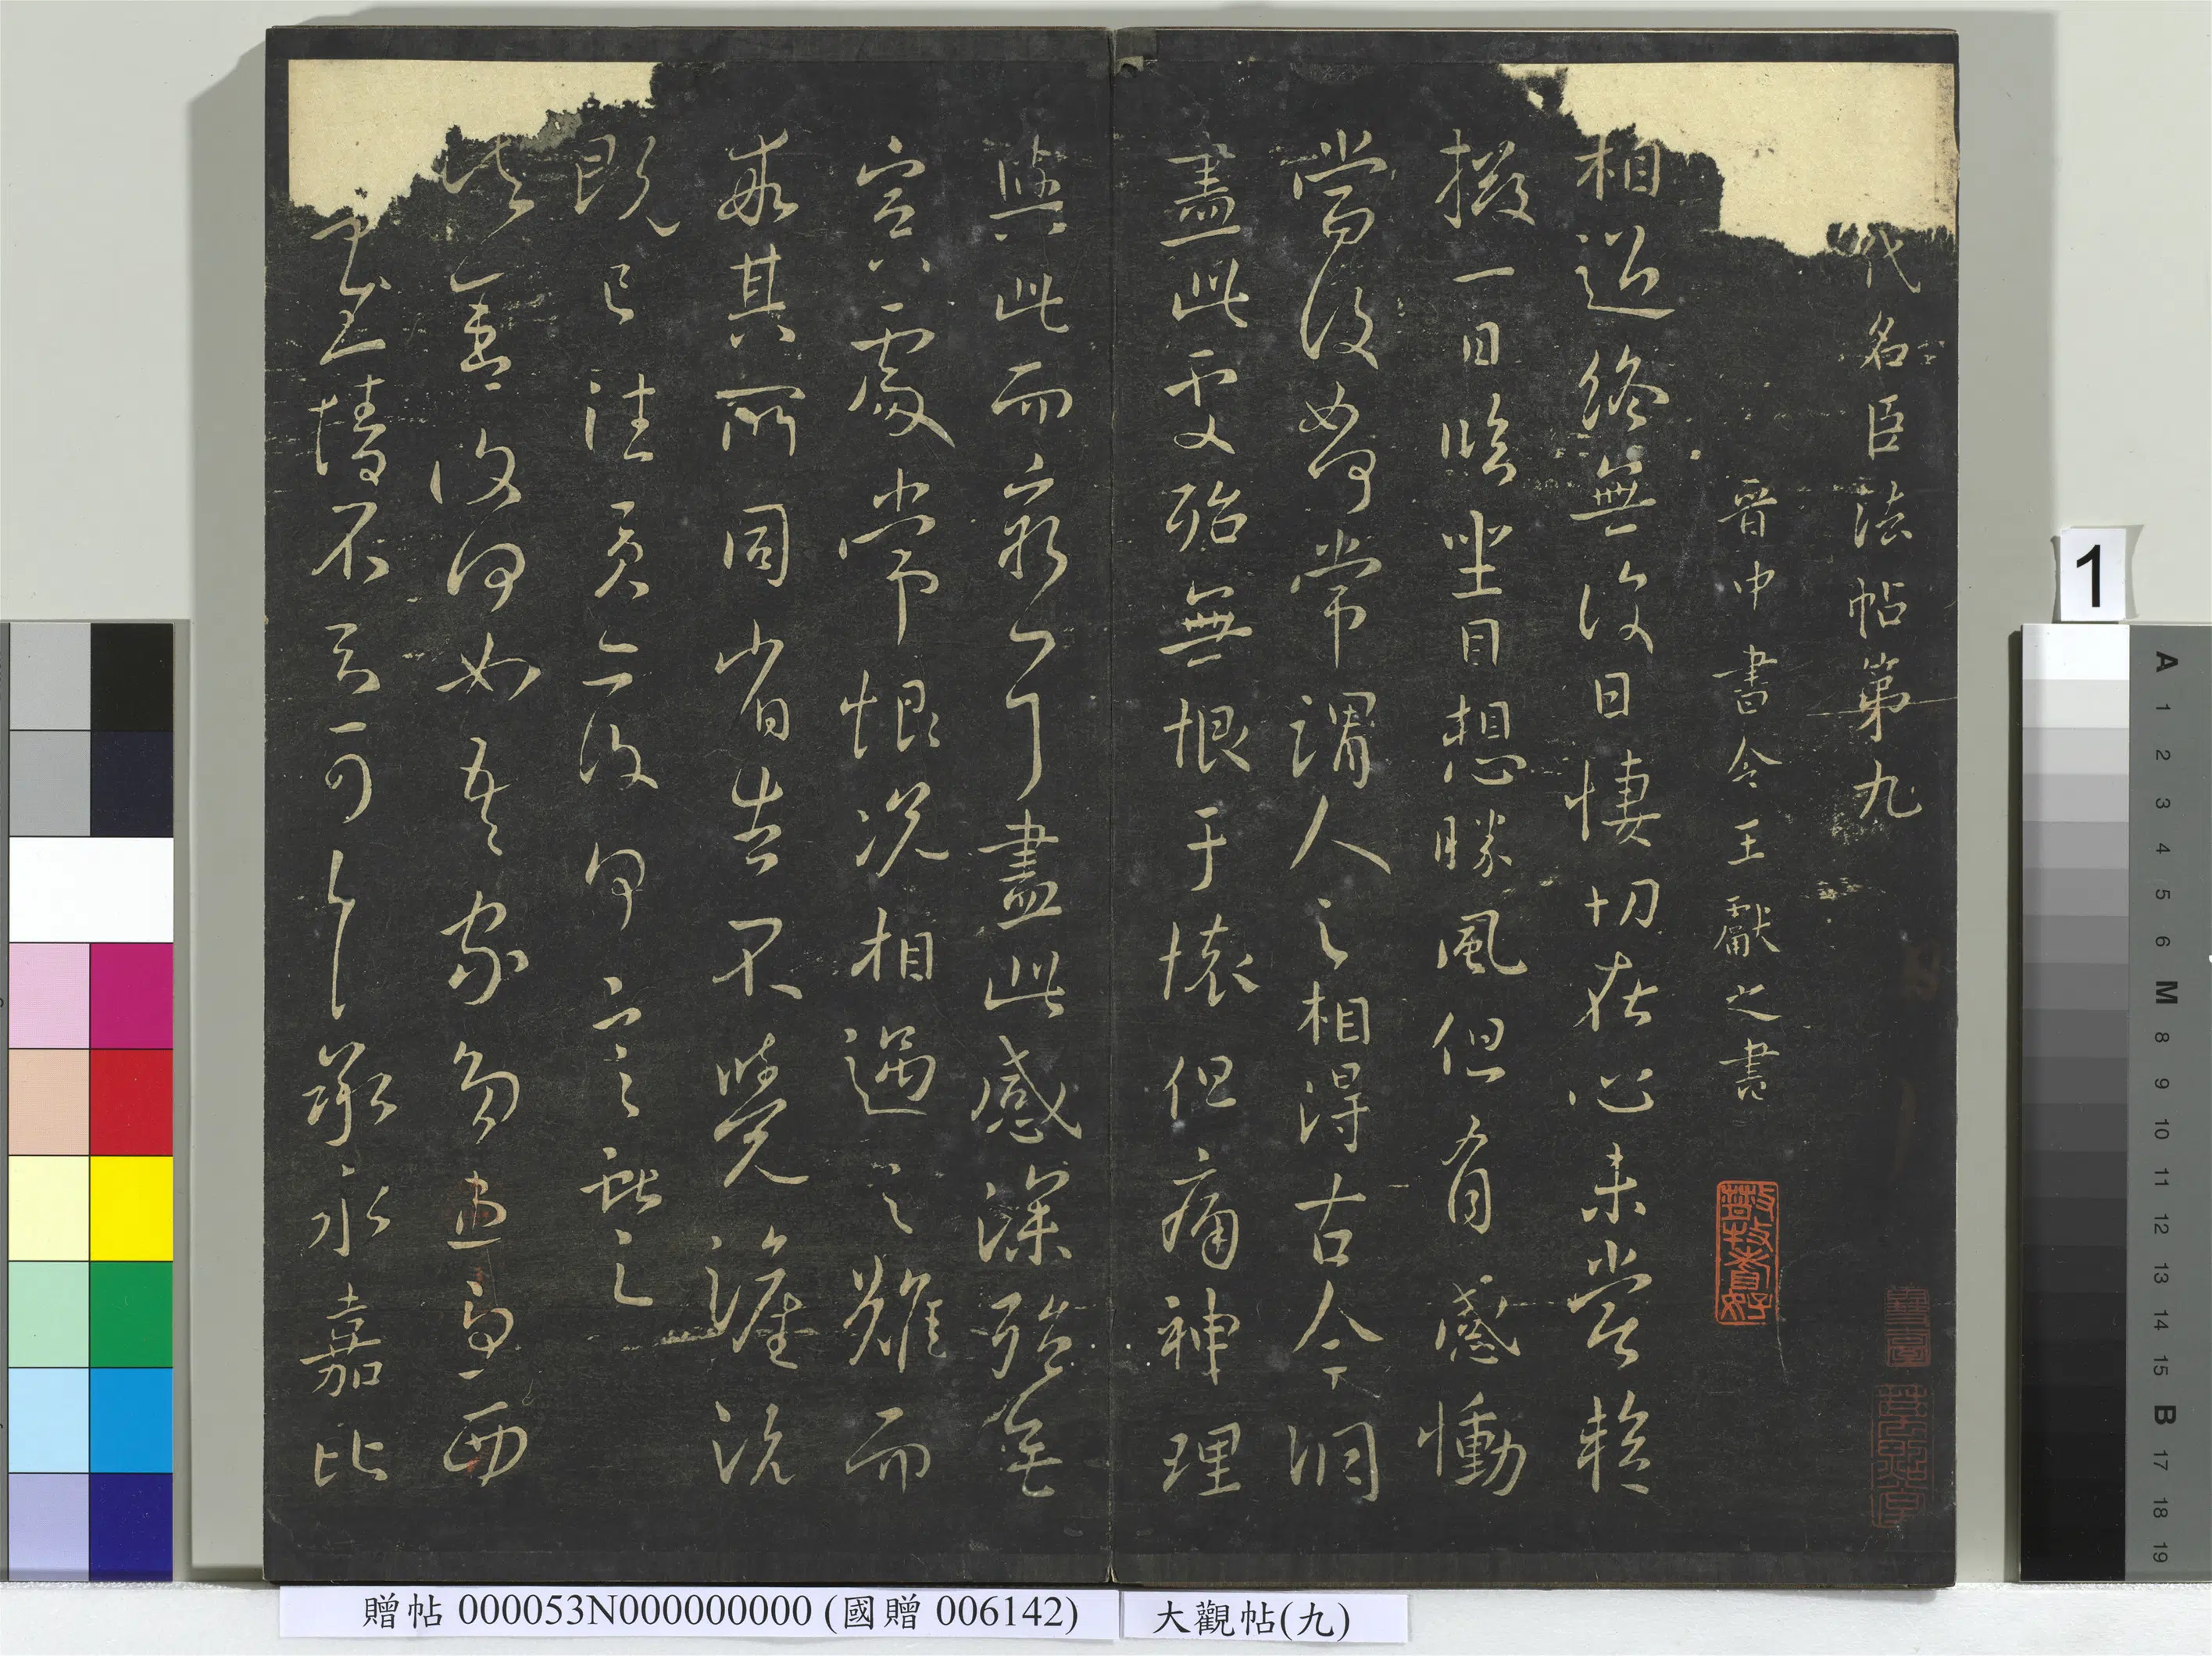 代名臣法帖第九
晉中書令王獻之書
相迎終無復日悽切在心未嘗暫
掇一日臨坐目想勝風但有感慟
當復如何常謂人之相得古今洞
盡此處殆無恨于懷但痛神理
與此而窮耳盡此感深殆無
冥處常恨况相遇之難而
乖其所同省告不覺流
既已往矣亦復何言獻之
復何如吾家多西
慰情不可承永嘉比
1
贈帖 000053N000000000 (國贈 006142)
大觀帖(九)
A 1 2 3 4 5 6 M 8 9 10 11 12 13 14 15 B 17 18 19